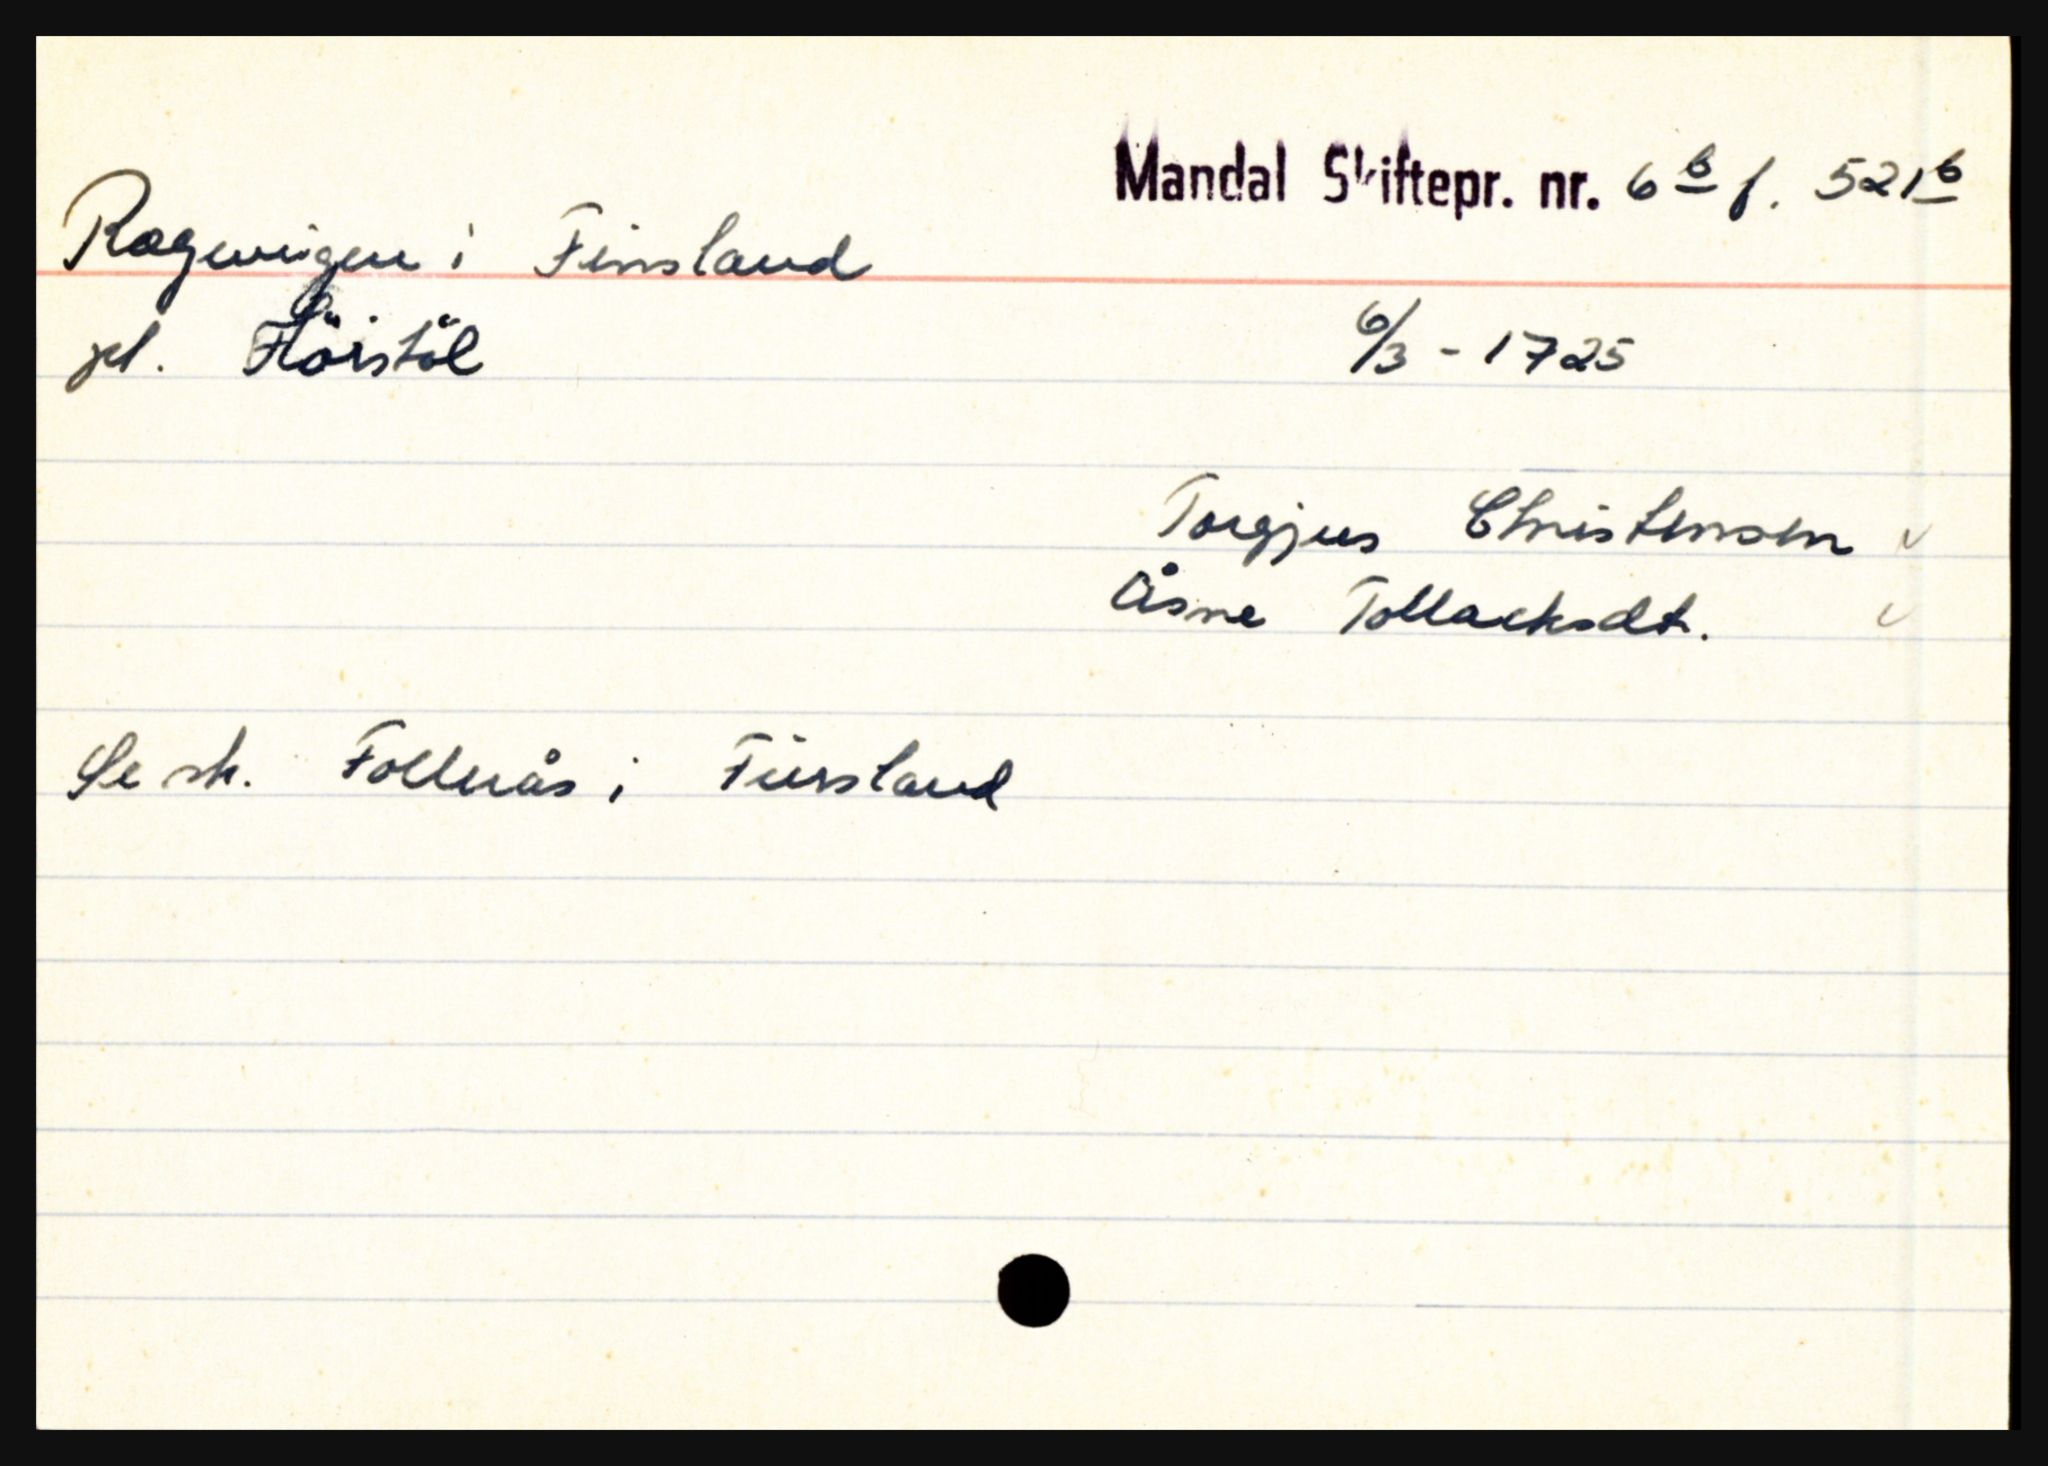 Mandal Skiftepr. nr. 6b f. 521b
i Finsland
pl. Hörstöl
6/3 - 1725
Torgjus Christensen ✓
Åsne Tollacksdt. ✓
Se sk. Follerås i Finsland